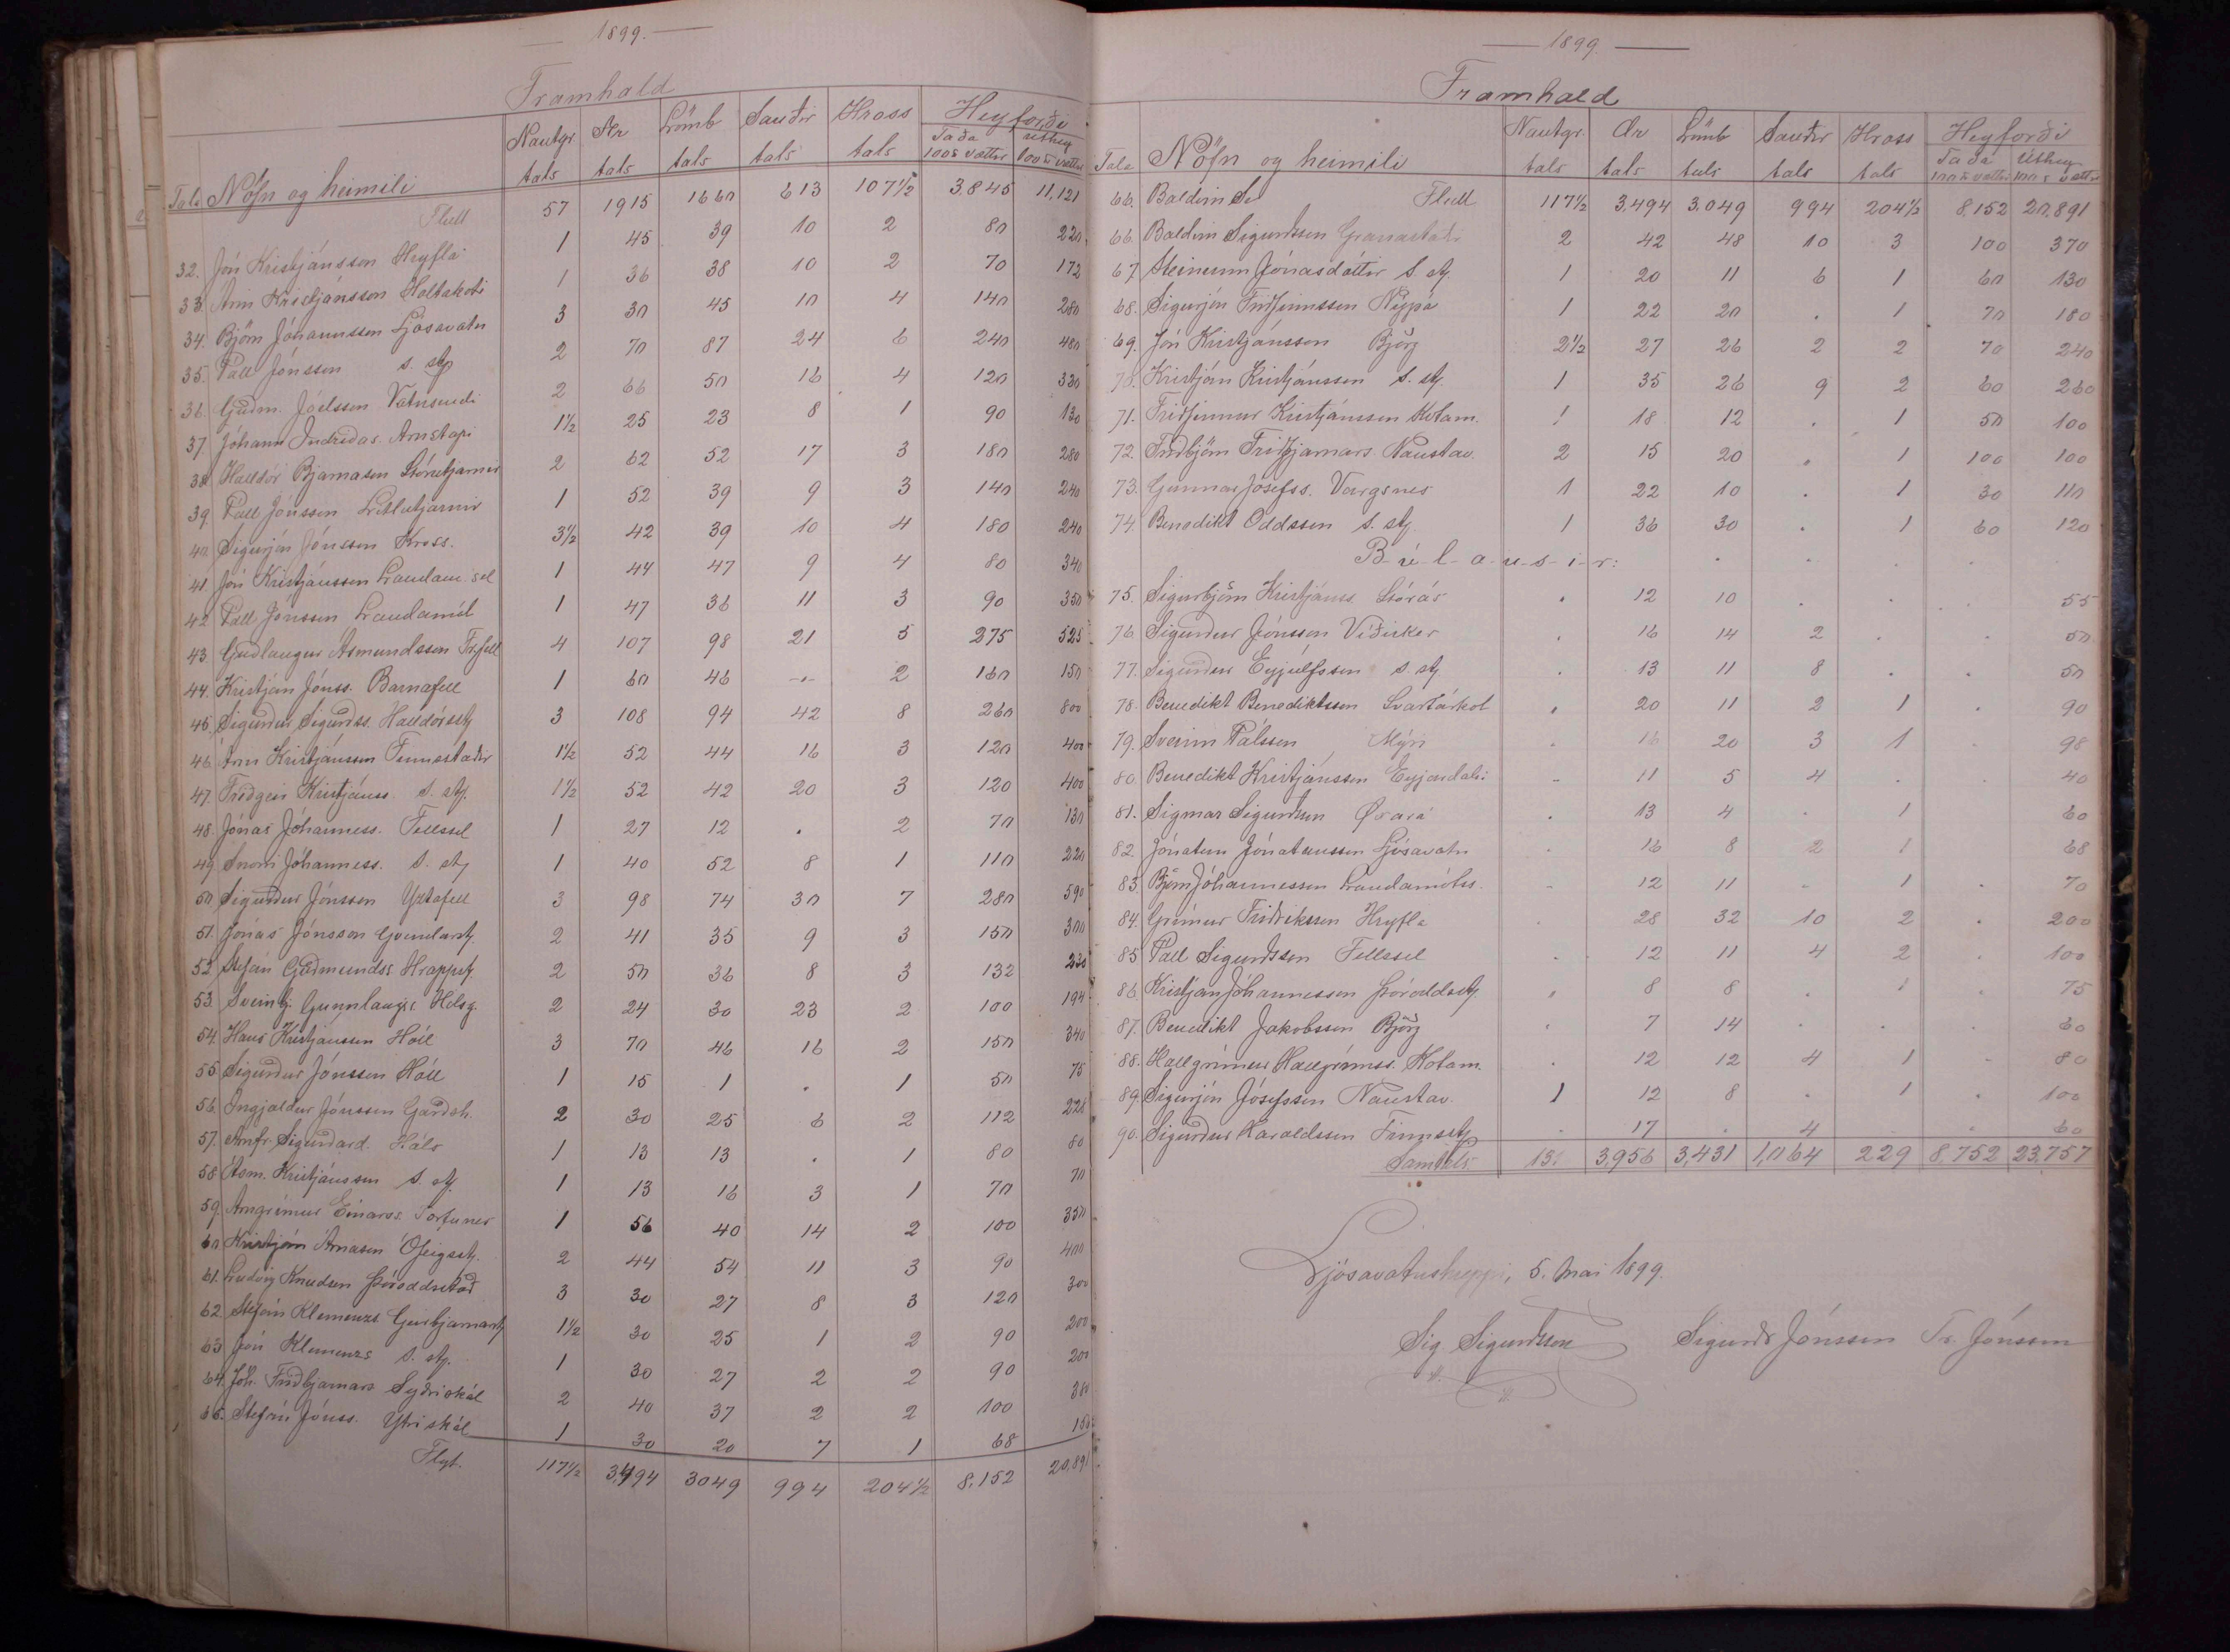 1899.
Framhald
Tala Nöfn og heimili Nautgr. tals Ær tals Lömb tals Sauðir tals Hross tals Heyforði Taða 100 ℔ vættir Úthey 100 ℔ vættir
Flutt 57 1915 1660 613 107½ 3.845 11,121
32. Jón Kristjánsson Hryfla 1 45 39 10 2 80 220
33. Árni Kristjánsson Holtakoti 1 36 38 10 2 70 172
34. Björn Jóhannsson Ljósavatn 3 30 45 10 4 140 280
35. Páll Jónsson s. st. 2 70 87 24 6 240 480
36. Guðm. Jóelsson Vatnsendi 2 66 50 16 4 120 330
37. Jóhann Indriðas. Arnstapi 1½ 25 23 8 1 90 130
38 Halldór Bjarnason Stórutjarnir 2 62 52 17 3 180 280
39. Páll Jónsson Litlutjarnir 1 52 39 9 3 140 240
40 Sigurjón Jónsson Kross. 3½ 42 39 10 4 180 240
41 Jón Kristjánsson Landam.sel 1 44 47 9 4 80 340
42 Páll Jónsson Landamót 1 47 36 11 3 90 350
43. Guðlaugur Ásmundsson Fr.fell 4 107 98 21 5 275 525
44. Kristján Jónss. Barnafell 1 60 46 -"- 2 160 150
45. Sigurður Sigurðss. Halldórsst. 3 108 94 42 8 260 800
46 Árni Kristjánsson Finnsstaðir 1½ 52 44 16 3 120 400
47. Friðgeir Kristjánss. s. st. 1½ 52 42 20 3 120 400
48. Jónas Jóhanness. Fellssel 1 27 12 . 2 70 130
49 Snorri Jóhanness. s. st. 1 40 52 8 1 110 220
50 Sigurður Jónsson Yztafell 3 98 74 30 7 280 590
51. Jónas Jónsson Gvendarst. 2 41 35 9 3 150 300
52. Stefán Guðmundss. Hrappst. 2 50 36 8 3 132 230
53. Sveinbj. Gunnlaugs. Hólsg. 2 24 30 23 2 100 194
54. Hans Kristjánsson Hóll 3 70 46 16 2 150 340
55 Sigurður Jónsson Hóll 1 15 1 . 1 50 75
56. Ingjaldur Jónsson Garðsh. 2 30 25 6 2 112 228
57. Arnfr. Sigurðard. Háls 1 13 13 . 1 80 80
58 Ásm. Kristjánsson s. st. 1 13 16 3 1 70 70
59. Arngrímur Einarss. Torfunes 1 56 40 14 2 100 350
60 Kristján Árnason Ófeigsst. 2 44 54 11 3 90 400
61. Ludvig Knudsen Þóroddsstað 3 30 27 8 3 120 300
62. Stefán Klemenzs Geirbjarnarst. 1½ 30 25 1 2 90 200
63 Jón Klemenzs s. st. 1 30 27 2 2 90 200
64. Jóh. Friðbjarnars Syðriskál 2 40 37 2 2 100 380
65. Stefán Jónss. Ytriskál 1 30 20 7 1 68 150
Flyt. 117½ 3,494 3049 994 204½ 8,152 20,891
1899.
Framhald
Tala Nöfn og heimili Nautgr. tals Ær tals Lömb tals Sauðir tals Hross tals Heyforði Taða 100 ℔ vættir Úthey 100 ℔ vættir
66. Baldvin S Flutt 117½ 3,494 3,049 994 204½ 8,152 20,891
66. Baldvin Sigurðsson Granastaðir 2 42 48 10 3 100 370
67. Steinunn Jónasdóttir s. st. 1 20 11 6 1 60 130
68. Sigurjón Friðfinnsson Nýpá 1 22 20 . 1 70 180
69. Jón Kristjánsson Björg 2½ 27 26 2 2 70 240
70. Kristján Kristjánsson s. st. 1 35 26 9 2 60 260
71. Friðfinnur Kristjánsson Kotam. 1 18 12 . 1 50 100
72. Friðbjörn Friðbjarnars. Naustav. 2 15 20 . 1 100 100
73. Gunnar Jósefss. Vargsnes 1 22 10 . 1 30 110
74 Benedikt Oddsson s. st. 1 36 30 . 1 60 120
B-ú-l-a-u-s-i-r:
75. Sigurbjörn Kristjánss. Stórás . 12 10 . . . 55
76. Sigurður Jónsson Víðirker . 16 14 2 . . 50
77. Sigurður Eyjúlfsson s. st. . 13 11 8 . . 50
78. Benedikt Benediktsson Svartárkot . 20 11 2 1 . 90
79. Sverinn Pálsson Mýri . 16 20 3 1 . 98
80. Benedikt Kristjánsson Eyjardalsá - 11 5 4 . . 40
81. Sigmar Sigurðsson Øxará . 13 4 . 1 60
82. Jónatan Jónatansson Ljósavatn . 16 8 2 1 68
83 Björn Jóhannesson Landamótss. - 12 11 - 1 . 70
84. Grímur Friðriksson Hryfla . 28 32 10 2 . 200
85 Páll Sigurðsson Fellssel . 12 11 4 2 . 100
86. Kristján Jóhannesson Þóroddsst. . 8 8 . 1 . 75
87. Benedikt Jakobsson Björg . 7 14 . . . 60
88. Hallgrímur Hallgrímss. Kotam. . 12 12 4 1 - 80
89. Sigurjón Jósefsson Naustav. 1 12 8 . 1 . 100
90. Sigurður Haraldsson Finnsst. . 17 . 4 . 60
Samtals 131 3,956 3,431 1,064 229 8,752 23,757
Ljósavatnshreppi, 5. mai 1899.
Sig Sigurðsson Sigurðr Jónsson Tr. Jónsson